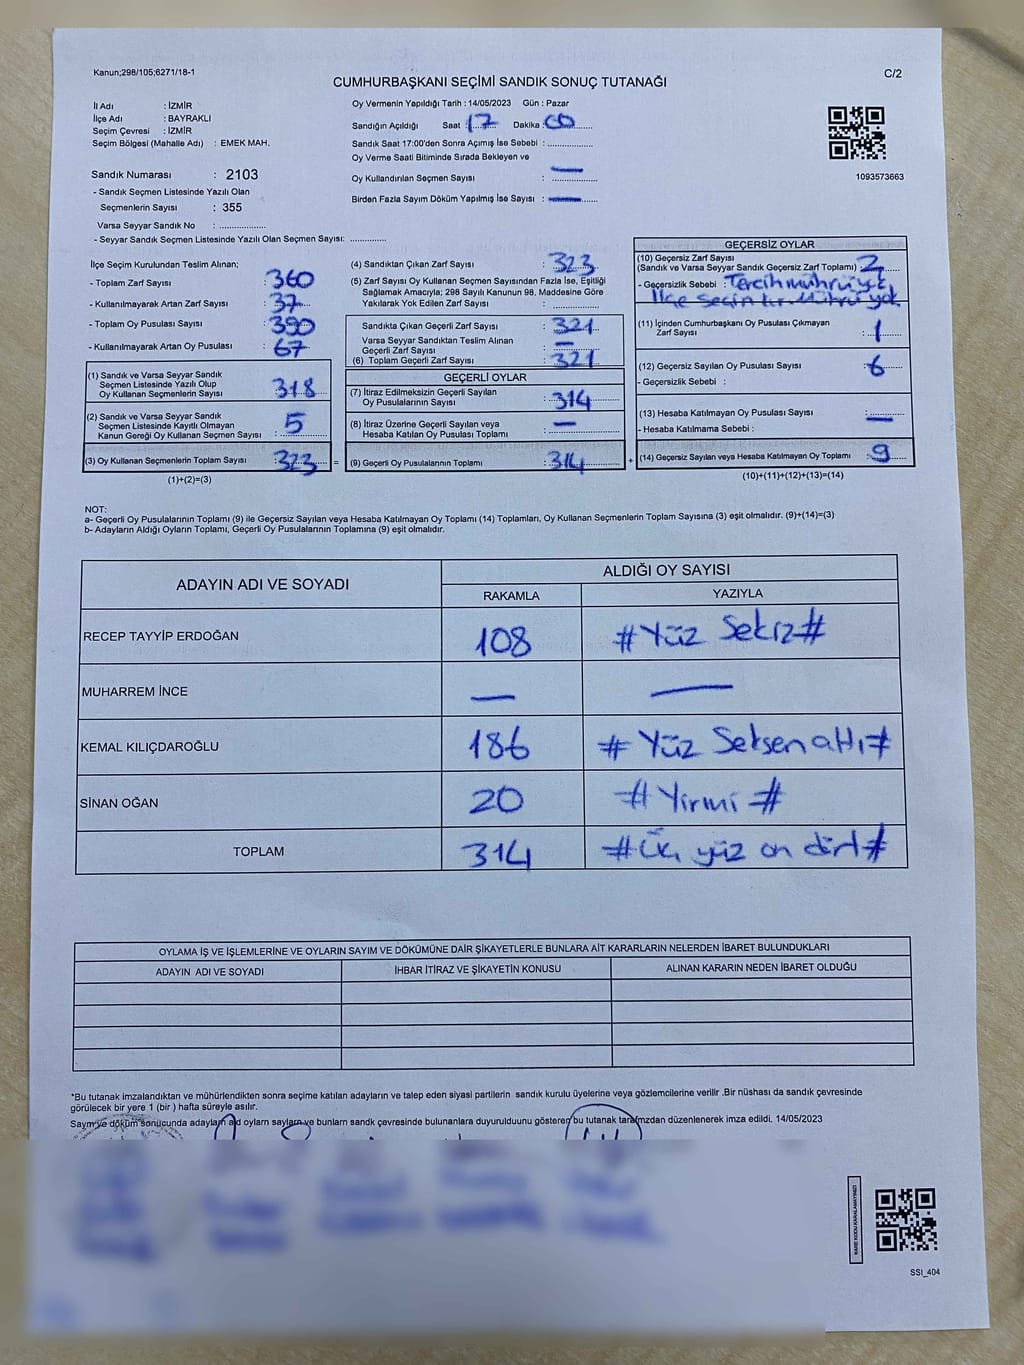 Kanun;298/105;6271/18-1
C/2
CUMHURBAŞKANI SEÇİMİ SANDIK SONUÇ TUTANAĞI
İl Adı : İZMİR
İlçe Adı : BAYRAKLI
Seçim Çevresi : İZMİR
Seçim Bölgesi (Mahalle Adı) : EMEK MAH.
Sandık Numarası : 2103
- Sandık Seçmen Listesinde Yazılı Olan
Seçmenlerin Sayısı : 355
Varsa Seyyar Sandık No :
- Seyyar Sandık Seçmen Listesinde Yazılı Olan Seçmen Sayısı:
Oy Vermenin Yapıldığı Tarih : 14/05/2023 Gün : Pazar
Sandığın Açıldığı Saat : 17 Dakika : 00
Sandık Saat 17:00'den Sonra Açımış İse Sebebi :
Oy Verme Saati Bitiminde Sırada Bekleyen ve
Oy Kullandırılan Seçmen Sayısı : —
Birden Fazla Sayım Döküm Yapılmış İse Sayısı : —
1093573663
İlçe Seçim Kurulundan Teslim Alınan;
- Toplam Zarf Sayısı : 360
- Kullanılmayarak Artan Zarf Sayısı : 37
- Toplam Oy Pusulası Sayısı : 390
- Kullanılmayarak Artan Oy Pusulası : 67
(1) Sandık ve Varsa Seyyar Sandık
Seçmen Listesinde Yazılı Olup
Oy Kullanan Seçmenlerin Sayısı : 318
(2) Sandık ve Varsa Seyyar Sandık
Seçmen Listesinde Kayıtlı Olmayan
Kanun Gereği Oy Kullanan Seçmen Sayısı : 5
(3) Oy Kullanan Seçmenlerin Toplam Sayısı : 323 =
(1)+(2)=(3)
(4) Sandıktan Çıkan Zarf Sayısı : 323
(5) Zarf Sayısı Oy Kullanan Seçmen Sayısından Fazla İse, Eşitliği
Sağlamak Amacıyla; 298 Sayılı Kanunun 98. Maddesine Göre
Yakılarak Yok Edilen Zarf Sayısı :
Sandıkta Çıkan Geçerli Zarf Sayısı : 321
Varsa Seyyar Sandıktan Teslim Alınan
Geçerli Zarf Sayısı : —
(6) Toplam Geçerli Zarf Sayısı : 321
GEÇERLİ OYLAR
(7) İtiraz Edilmeksizin Geçerli Sayılan
Oy Pusulalarının Sayısı : 314
(8) İtiraz Üzerine Geçerli Sayılan veya
Hesaba Katılan Oy Pusulası Toplamı : —
(9) Geçerli Oy Pusulalarının Toplamı : 314 +
GEÇERSİZ OYLAR
(10) Geçersiz Zarf Sayısı
(Sandık ve Varsa Seyyar Sandık Geçersiz Zarf Toplamı) : 2
- Geçersizlik Sebebi : Tercih mührü yok
İlçe seçin kr. Mührü yok
(11) İçinden Cumhurbaşkanı Oy Pusulası Çıkmayan
Zarf Sayısı : 1
(12) Geçersiz Sayılan Oy Pusulası Sayısı : 6
- Geçersizlik Sebebi :
(13) Hesaba Katılmayan Oy Pusulası Sayısı : —
- Hesaba Katılmama Sebebi :
(14) Geçersiz Sayılan veya Hesaba Katılmayan Oy Toplamı : 9
(10)+(11)+(12)+(13)=(14)
NOT:
a- Geçerli Oy Pusulalarının Toplamı (9) ile Geçersiz Sayılan veya Hesaba Katılmayan Oy Toplamı (14) Toplamları, Oy Kullanan Seçmenlerin Toplam Sayısına (3) eşit olmalıdır. (9)+(14)=(3)
b- Adayların Aldığı Oyların Toplamı, Geçerli Oy Pusulalarının Toplamına (9) eşit olmalıdır.
ADAYIN ADI VE SOYADI ALDIĞI OY SAYISI
RAKAMLA YAZIYLA
RECEP TAYYİP ERDOĞAN 108 #Yüz Sekiz#
MUHARREM İNCE — —
KEMAL KILIÇDAROĞLU 186 #Yüz Seksen altı#
SİNAN OĞAN 20 #Yirmi#
TOPLAM 314 #Üç yüz on dört#
OYLAMA İŞ VE İŞLEMLERİNE VE OYLARIN SAYIM VE DÖKÜMÜNE DAİR ŞİKAYETLERLE BUNLARA AİT KARARLARIN NELERDEN İBARET BULUNDUKLARI
ADAYIN ADI VE SOYADI İHBAR İTİRAZ VE ŞİKAYETİN KONUSU ALINAN KARARIN NEDEN İBARET OLDUĞU
*Bu tutanak imzalandıktan ve mühürlendikten sonra seçime katılan adayların ve talep eden siyasi partilerin sandık kurulu üyelerine veya gözlemcilerine verilir .Bir nüshası da sandık çevresinde
görülecek bir yere 1 (bir ) hafta süreyle asılır.
Sayım ve döküm sonucunda adayların ald oyların sayların ve bunların sandk çevresinde bulunanlara duyurulduunu gösteren bu tutanak tarafmzdan düzenlenerek imza edildi. 14/05/2023
KARE KODU KARALAMAYINIZ!
SSI_404